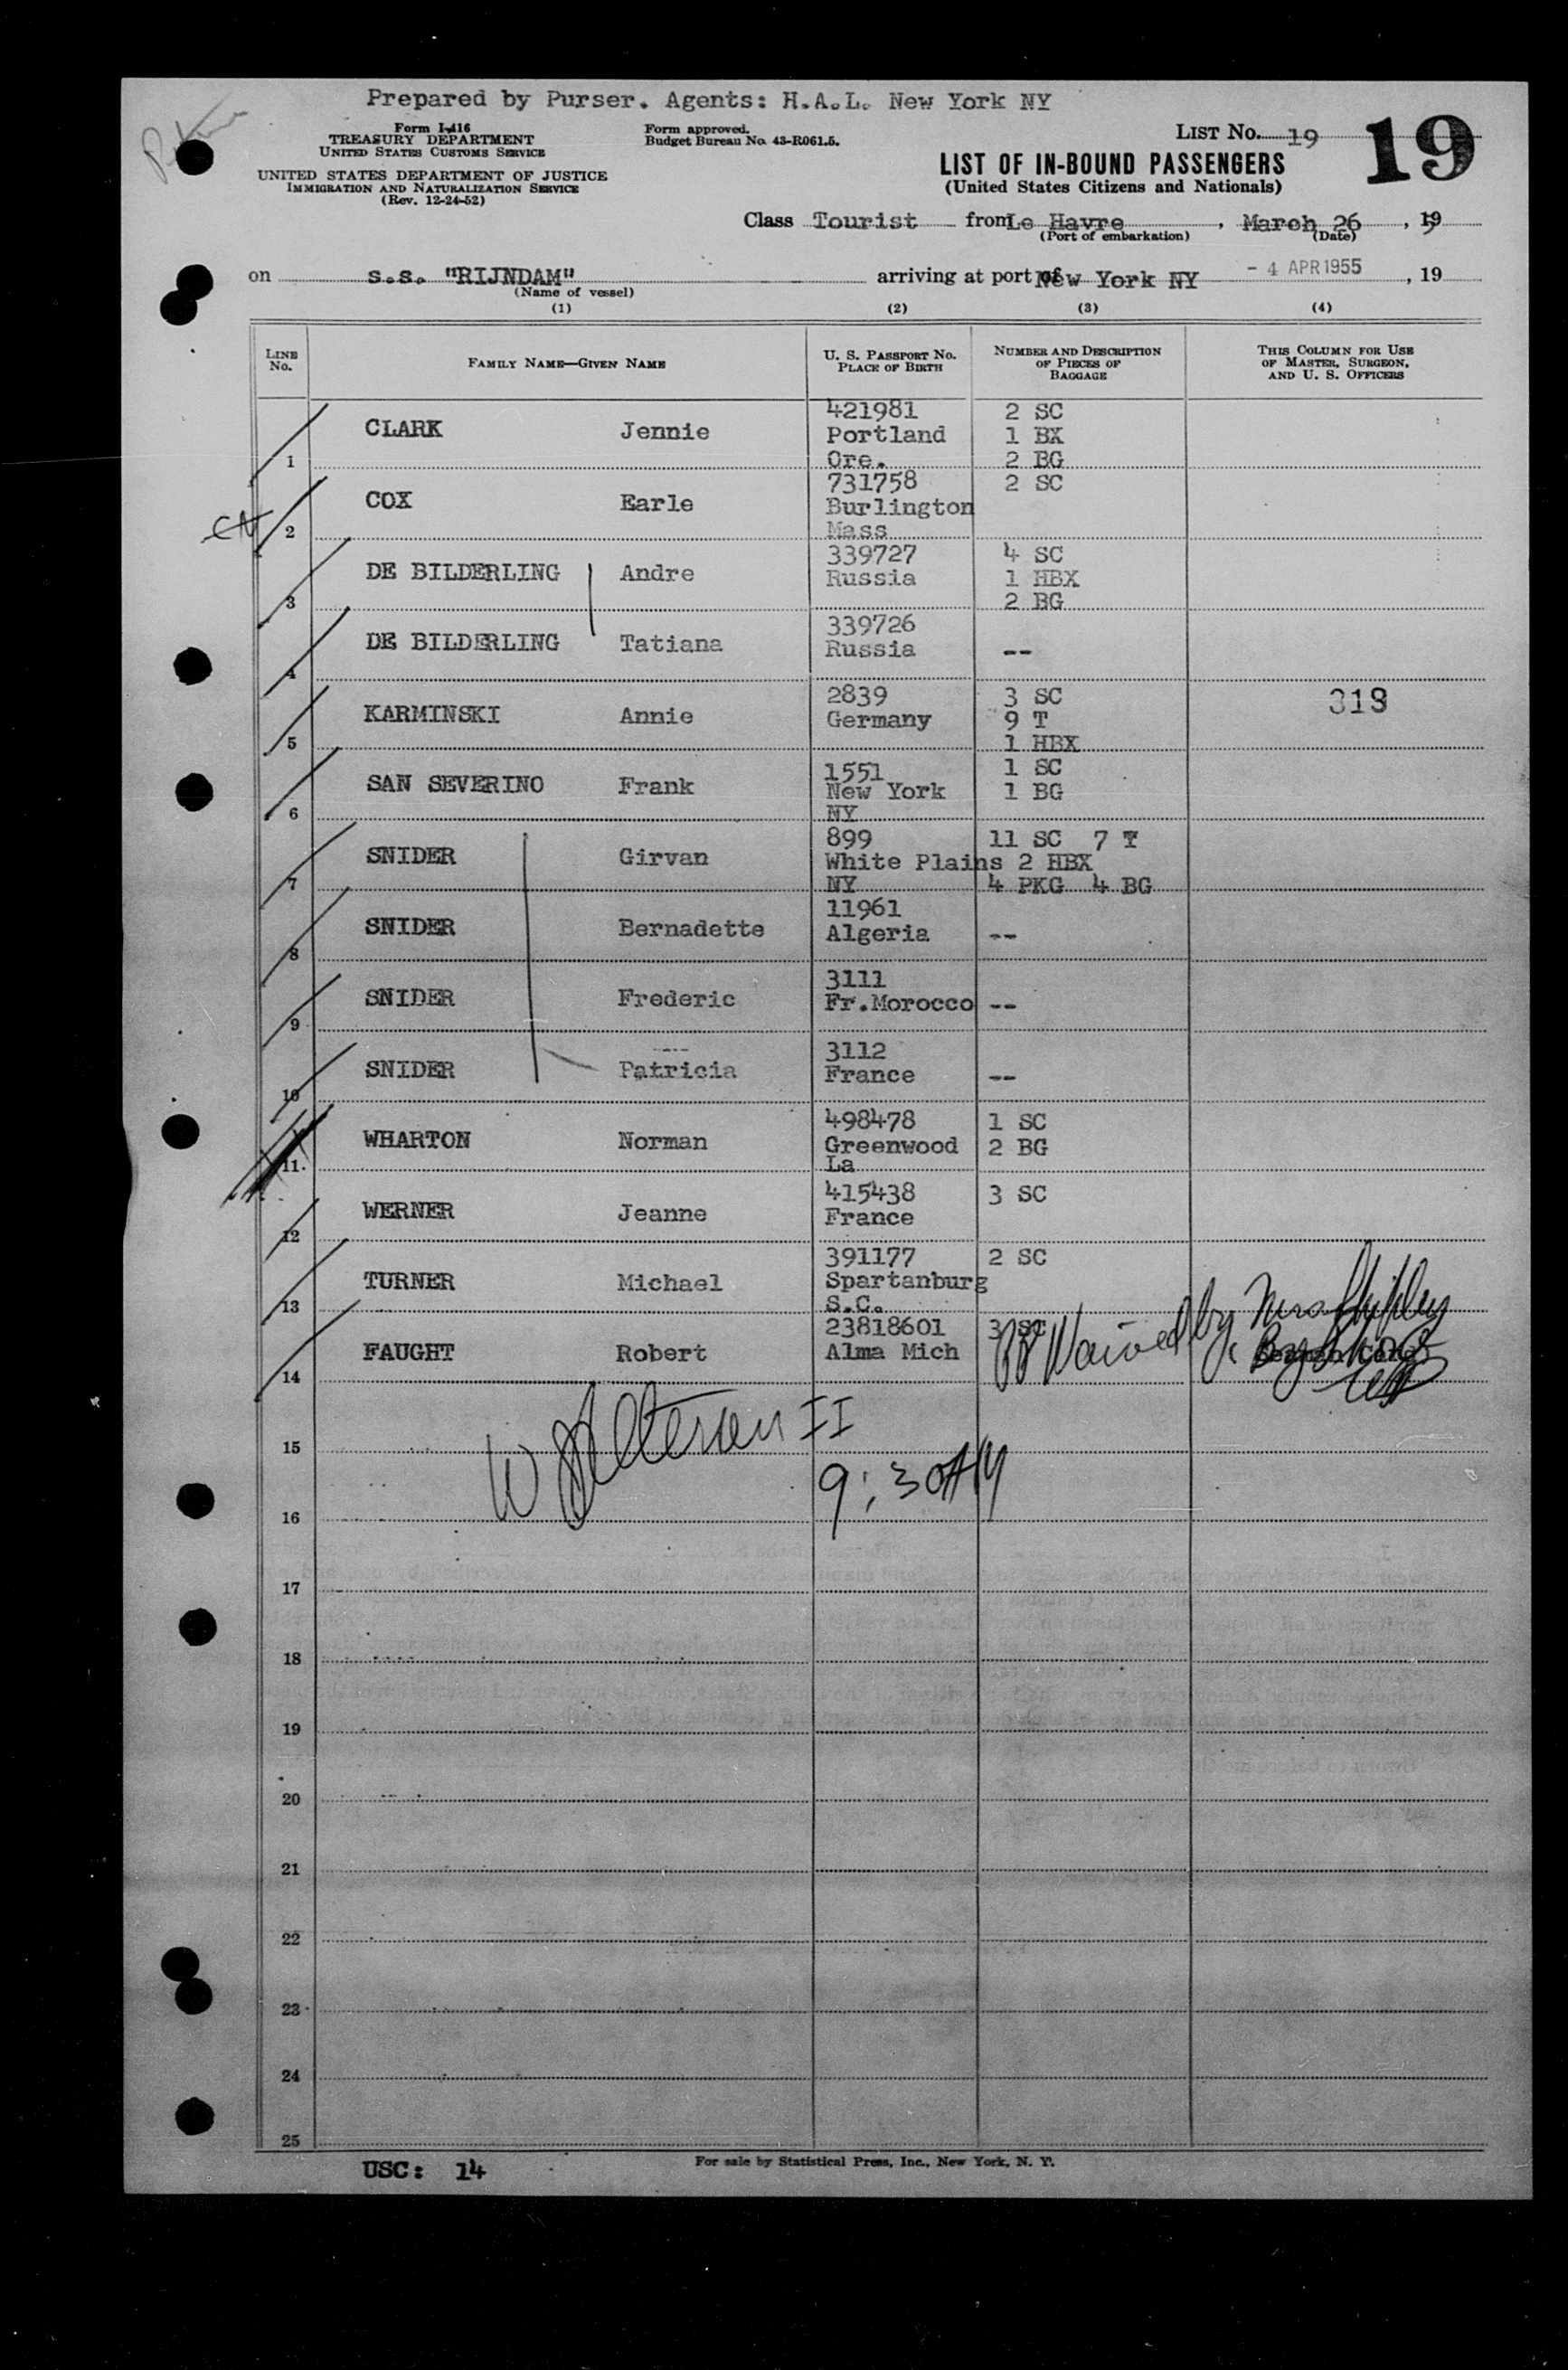 Prepared by Purser. Agents: H.A.L. New York NY
Form I-416
TREASURY DEPARTMENT
UNITED STATES CUSTOMS SERVICE
UNITED STATES DEPARTMENT OF JUSTICE
IMMIGRATION AND NATURALIZATION SERVICE
(Rev. 12-24-52)
Form approved.
Budget Bureau No. 43-R061.5.
LIST No. 19
19
LIST OF IN-BOUND PASSENGERS
(United States Citizens and Nationals)
Class Tourist from Le Havre, March 26, 19
(Port of embarkation) (Date)
on s.s. "RIJNDAM" arriving at port of New York NY - 4 APR 1955, 19
(Name of vessel)
(1) (2) (3) (4)
LINE No. FAMILY NAME—GIVEN NAME U. S. PASSPORT No. PLACE OF BIRTH NUMBER AND DESCRIPTION OF PIECES OF BAGGAGE THIS COLUMN FOR USE OF MASTER, SURGEON, AND U. S. OFFICERS
1 CLARK Jennie 421981 Portland Ore. 2 SC 1 BX 2 BG
2 COX Earle 731758 Burlington Mass 2 SC
3 DE BILDERLING Andre 339727 Russia 4 SC 1 HBX 2 BG
4 DE BILDERLING Tatiana 339726 Russia --
5 KARMINSKI Annie 2839 Germany 3 SC 9 T 1 HBX 319
6 SAN SEVERINO Frank 1551 New York NY 1 SC 1 BG
7 SNIDER Girvan 899 White Plains NY 11 SC 7 T 2 HBX 4 PKG 4 BG
8 SNIDER Bernadette 11961 Algeria --
9 SNIDER Frederic 3111 Fr.Morocco --
10 SNIDER Patricia 3112 France --
11 WHARTON Norman 498478 Greenwood La 1 SC 2 BG
12 WERNER Jeanne 415438 France 3 SC
13 TURNER Michael 391177 Spartanburg S.C. 2 SC
14 FAUGHT Robert 23818601 Alma Mich 3 SC PP Waived by
15
II
9:30AM
16
17
18
19
20
21
22
23
24
25
USC: 14
For sale by Statistical Press, Inc., New York, N. Y.